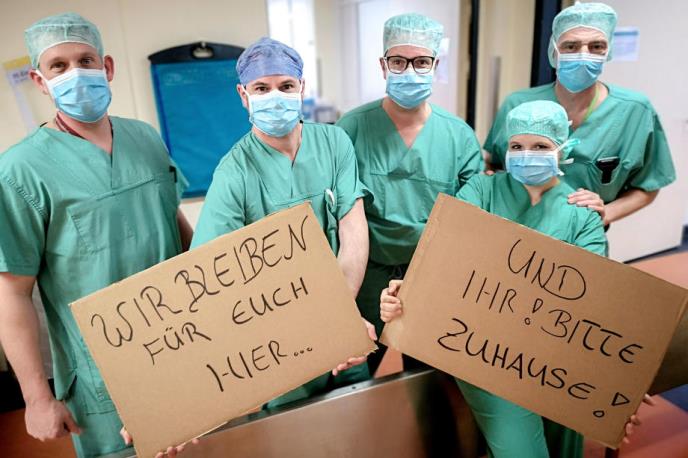 WIR BLEIBEN
FÜR EUCH
HIER...
UND
IHR! BITTE
ZUHAUSE!